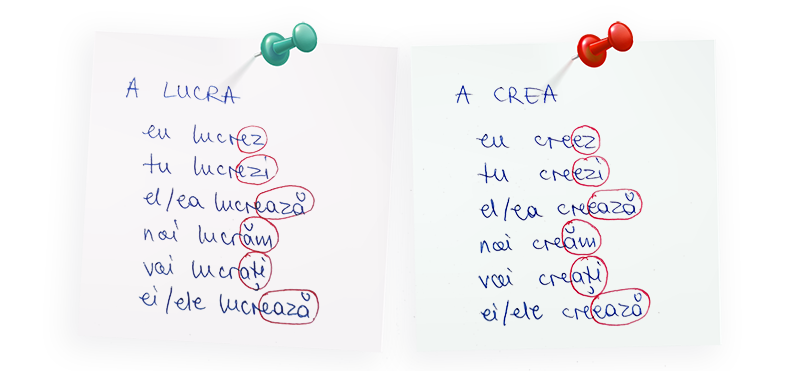 A LUCRA
eu lucrez
tu lucrezi
el/ea lucrează
noi lucrăm
voi lucrați
ei/ele lucrează
A CREA
eu creez
tu creezi
el/ea creează
noi creăm
voi creați
ei/ele creează